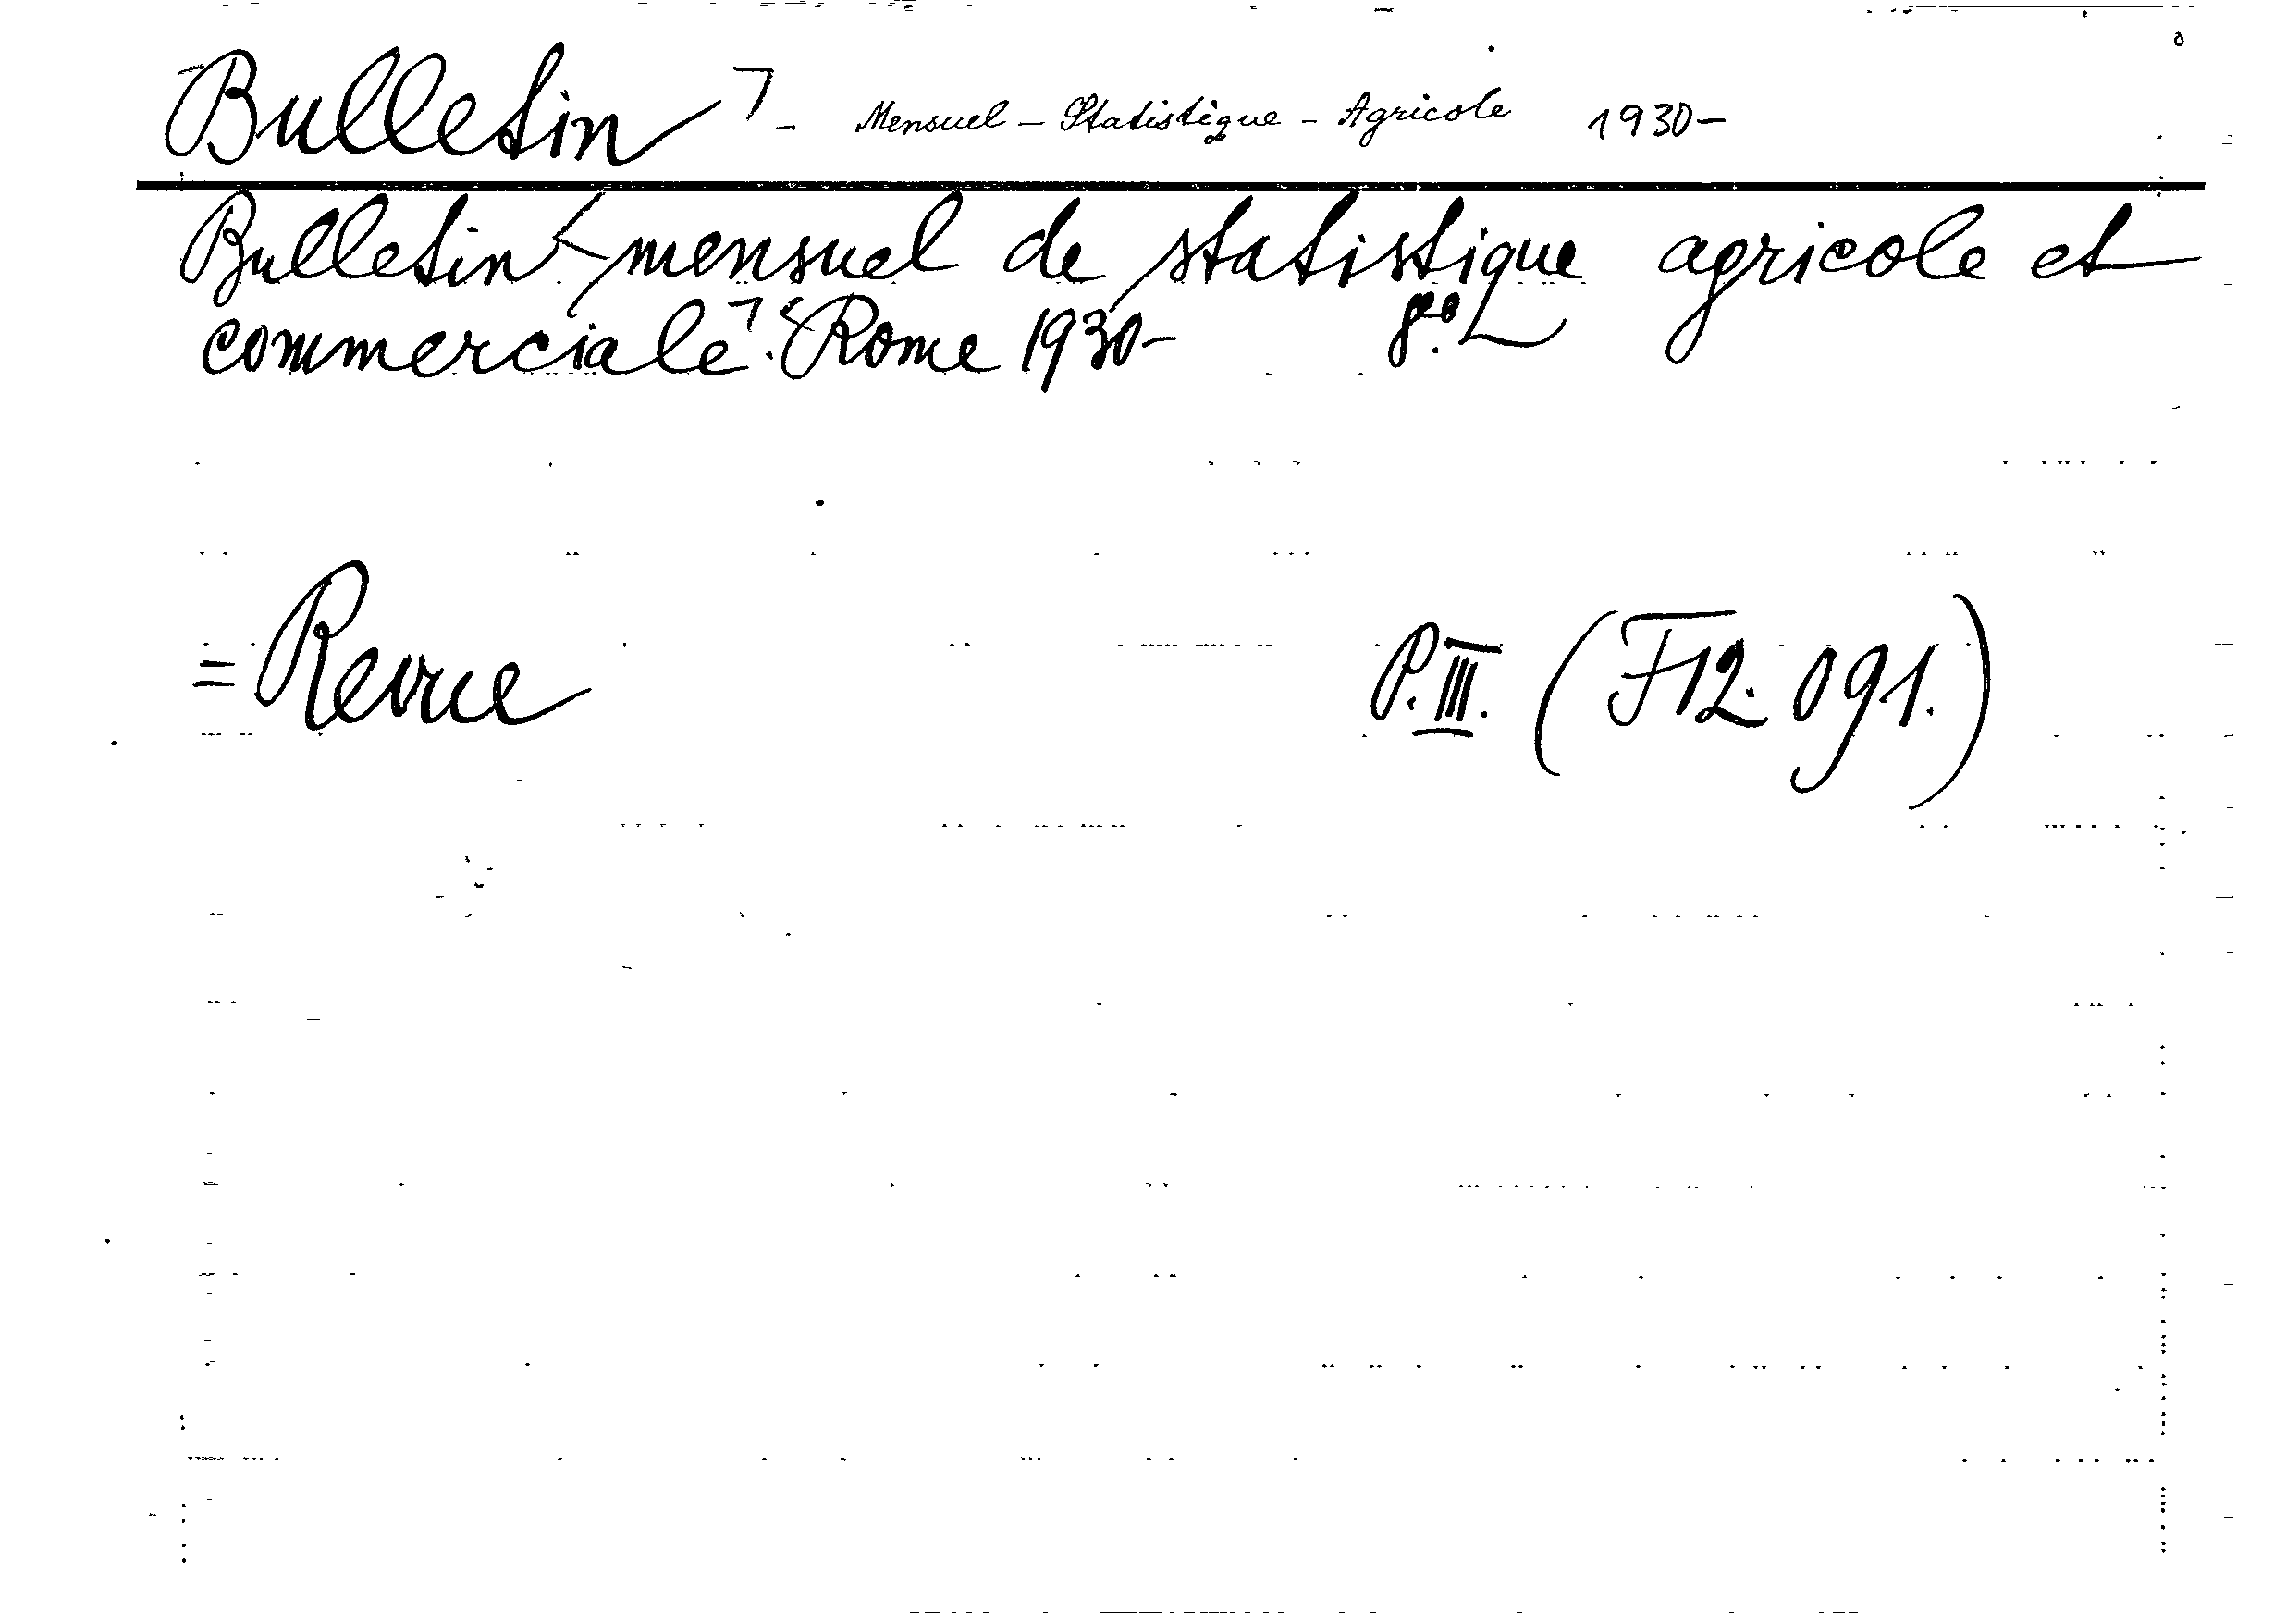 Bulletin - Mensuel - Statistique - Agricole 1930-
Bulletin mensuel de statistique agricole et
commerciale. Rome 1930-
= Revue P. III. (F12. 091.)